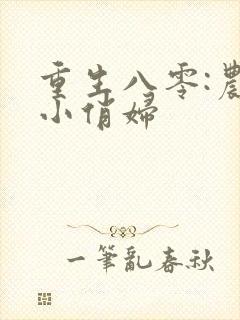 重生八零:農
小俏婦
一筆亂春秋